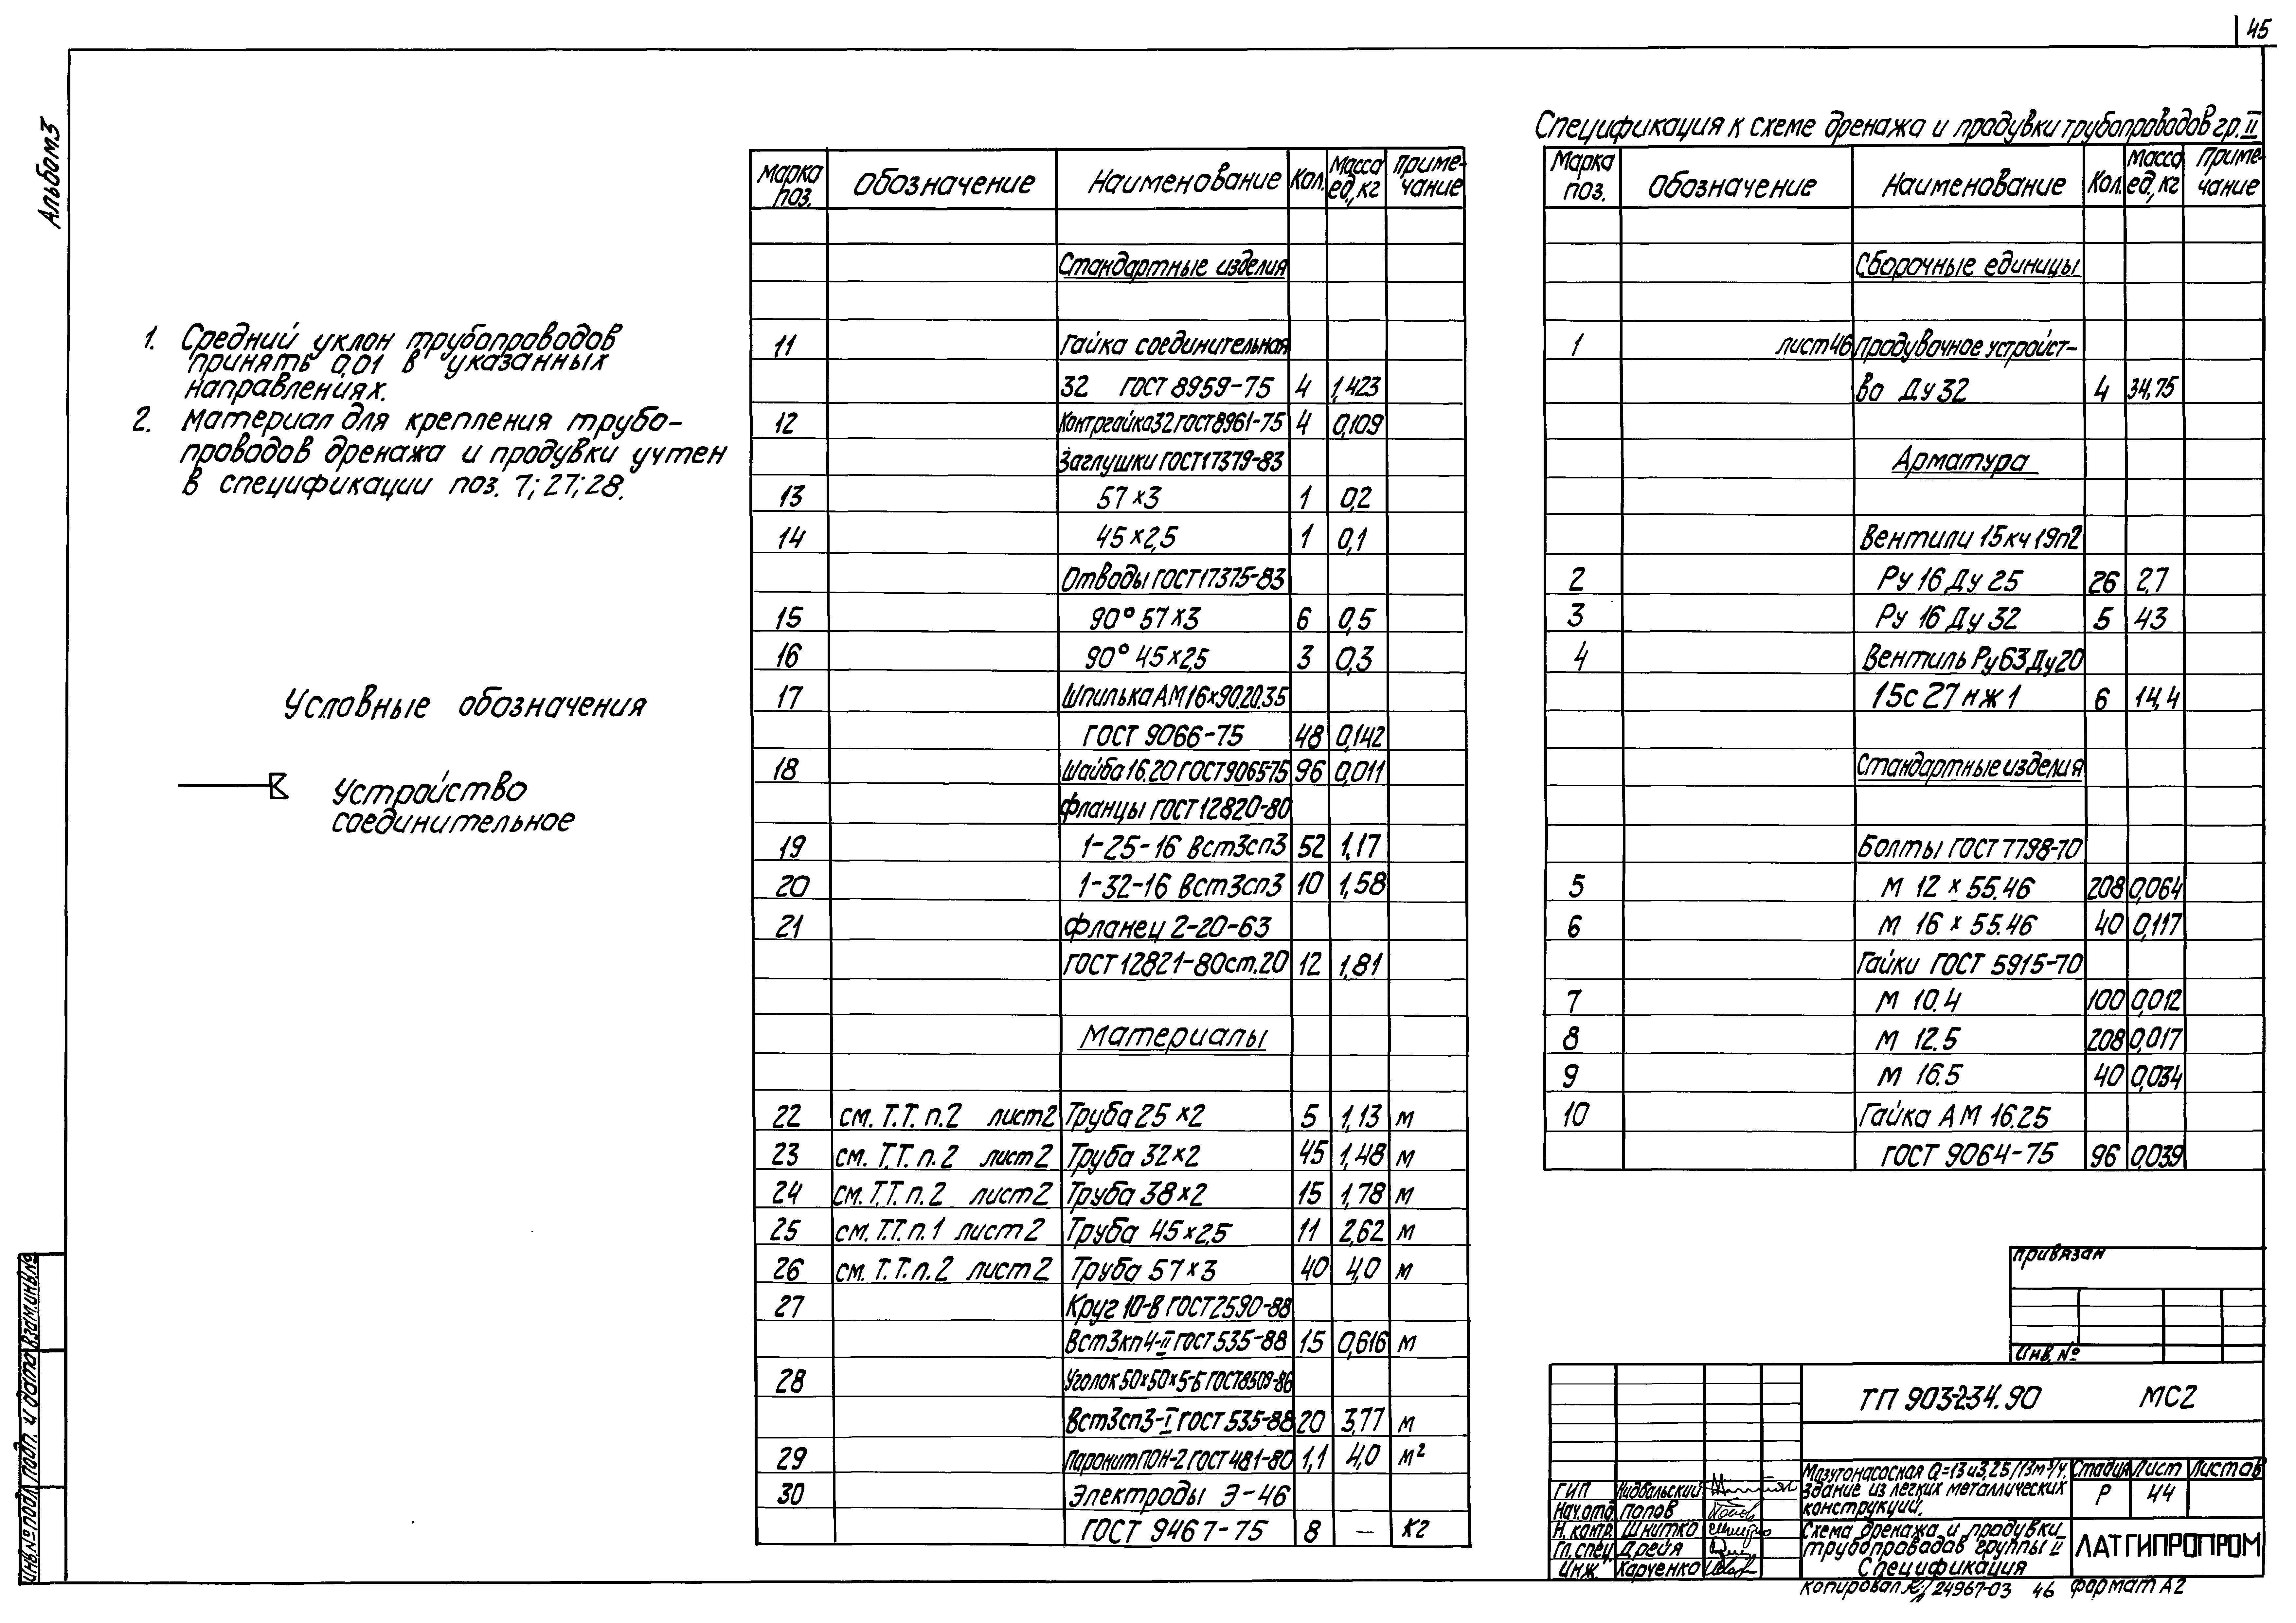 45
Альбом 3
1. Средний уклон трубопроводов
принять 0,01 в указанных
направлениях.
2. Материал для крепления трубо-
проводов дренажа и продувки учтен
в спецификации поз. 7; 27; 28.
Условные обозначения
Устройство
соединительное
Марка поз. Обозначение Наименование Кол. Масса ед, кг Приме-чание
Стандартные изделия
11 Гайка соединительная
32 ГОСТ 8959-75 4 1,423
12 Контргайка 32 ГОСТ 8961-75 4 0,109
Заглушки ГОСТ 17379-83
13 57×3 1 0,2
14 45×2,5 1 0,1
Отводы ГОСТ 17375-83
15 90° 57×3 6 0,5
16 90° 45×2,5 3 0,3
17 Шпилька АМ16×90.20.35
ГОСТ 9066-75 48 0,142
18 Шайба 16.20 ГОСТ 9065-75 96 0,011
Фланцы ГОСТ 12820-80
19 1-25-16 Вст3сп3 52 1,17
20 1-32-16 Вст3сп3 10 1,58
21 Фланец 2-20-63
ГОСТ 12821-80 ст.20 12 1,81
Материалы
22 см. Т.Т. п.2 лист 2 Труба 25×2 5 1,13 м
23 см. Т.Т. п.2 лист 2 Труба 32×2 45 1,48 м
24 см. Т.Т. п.2 лист 2 Труба 38×2 15 1,78 м
25 см. Т.Т. п.1 лист 2 Труба 45×2,5 11 2,62 м
26 см. Т.Т. п.2 лист 2 Труба 57×3 40 4,0 м
27 Круг 10-В ГОСТ 2590-88
Вст3кп4-II ГОСТ 535-88 15 0,616 м
28 Уголок 50×50×5-Б ГОСТ 8509-86
Вст3сп3-I ГОСТ 535-88 20 3,77 м
29 Паронит ПОН-2 ГОСТ 481-80 1,1 4,0 м²
30 Электроды Э-46
ГОСТ 9467-75 8 — кг
Спецификация к схеме дренажа и продувки трубопроводов гр. II
Марка поз. Обозначение Наименование Кол. Масса ед, кг Приме-чание
Сборочные единицы
1 лист 46 Продувочное устройст-
во Ду 32 4 34,75
Арматура
Вентили 15кч19п2
2 Ру 16 Ду 25 26 2,7
3 Ру 16 Ду 32 5 43
4 Вентиль Ру63 Ду20
15с27нж1 6 14,4
Стандартные изделия
Болты ГОСТ 7798-70
5 М 12 × 55.46 208 0,064
6 М 16 × 55.46 40 0,117
Гайки ГОСТ 5915-70
7 М 10.4 100 0,012
8 М 12.5 208 0,017
9 М 16.5 40 0,034
10 Гайка АМ 16.25
ГОСТ 9064-75 96 0,039
Привязан
Инв. №
ТП 903-2-34.90 МС2
Мазутонасосная Q=13 и 3,25/13 м³/ч.
Здание из легких металлических
конструкций.
Стадия Лист Листов
Р 44
ГИП Нидбальский
Нач. отд. Попов
Н. контр. Шнитко
Гл. спец. Дрейя
Инж. Харченко
Схема дренажа и продувки
трубопроводов группы II
Спецификация
ЛАТГИПРОПРОМ
Копировал 24967-03 46 Формат А2
Инв. № подл. Подп. и дата Взам. инв. №